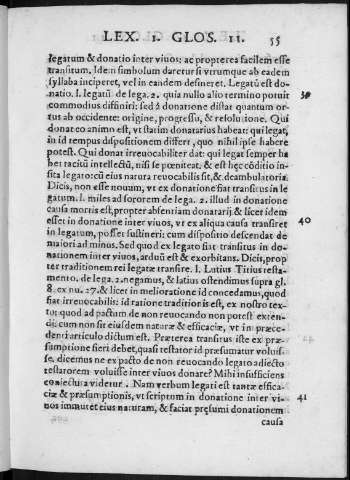 LEX. 1. GLOS. 11. 55
legatum & donatio inter viuos: ac propterea facilem esse
transitum. Idem simbolum daretur si vtrumque ab eadem
syllaba inciperet, vel in eandem desineret. Legatū est do-
natio. l. legatū. de lega. 2. quia nullo alio termino potuit 39
commodius diffiniri: sed à donatione distat quantum or-
tus ab occidente: origine, progressu, & resolutione. Qui
donat eo animo est, vt statim donatarius habeat: qui legat,
in id tempus dispositionem differt, quo nihil ipse habere
potest. Qui donat irreuocabiliter dat: qui legat semper ha
bet tacitū intellectū, nisi te pœniteat, & est hęc cōditio in-
sita legato: cū eius natura reuocabilis sit, & deambulatoria.
Dicis, non esse nouum, vt ex donatione fiat transitus in le
gatum. l. miles ad sororem de lega. 2. illud in donatione
causa mortis est, propter absentiam donatarij: & licet idem
esset in donatione inter viuos, vt ex aliqua causa transiret 40
in legatum, posset sustineri: cum dispositio descendat de
maiori ad minus. Sed quod ex legato fiat transitus in do-
nationem inter viuos, arduū est & exorbitans. Dicis, prop
ter traditionem rei legatæ transire. l. Lutius Titius testa-
mento. de lega. 2. negamus, & latius ostendimus supra gl.
8. ex nu. 27. & licet in melioratione id concedamus, quod
fiat irreuocabilis: id ratione traditionis est, ex nostro tex-
tu: quod ad pactum de non reuocando non potest exten-
di: cum non sit eiusdem naturæ & efficaciæ, vt in præce-
denti articulo dictum est. Præterea transitus iste ex præ-
sumptione fieri debet, quasi testator id præsumatur voluis-
se. dicemus ne ex pacto de non reuocando legato adiecto
testatorem voluisse inter viuos donare? Mihi insufficiens
coniectura videtur. Nam verbum legati est tantæ effica-
ciæ & præsumptionis, vt scriptum in donatione inter vi- 41
uos immutet eius naturam, & faciat pręsumi donationem
causa